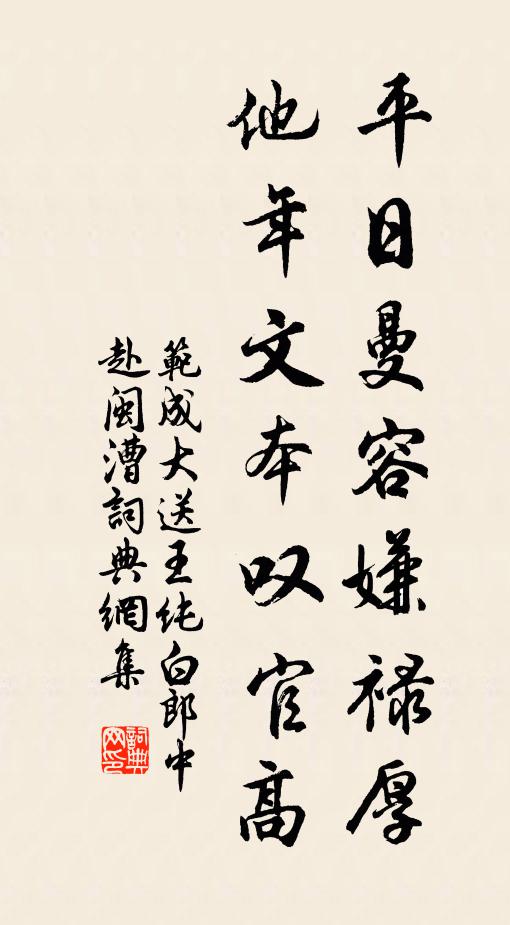 平日曼容嫌禄厚
他年文本叹官高
範成大送王純白郎中
赴閩漕詞典網集
詞典
网印